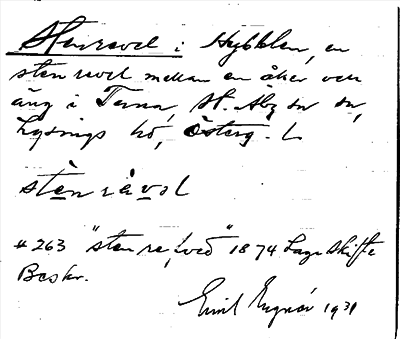 Stenravel i Hybblen, en
sten ravel mellan en åker och
äng i Terna, St. Åby sn sn,
Lysings hd, Österg. L
stenråvol
# 263 "sten ra, vel" 1874 Laga Skifte
Beskr.
Emil 1931